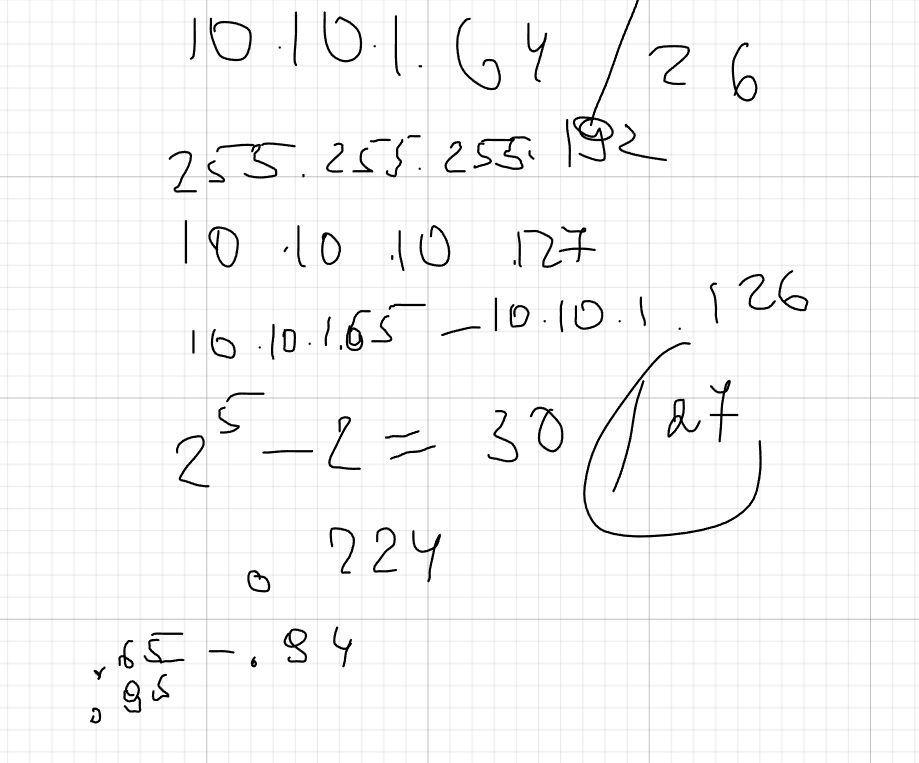 10.10.1.64/26
255.255.255.192
10.10.10.127
10.10.1.65-10.10.1.126
2^5-2=30 /27
.224
.65-.94
.95